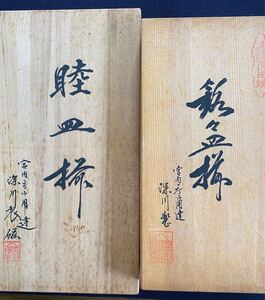 銘々皿揃
宮内庁御用達
深川製
睦皿揃
宮内庁御用達
深川製磁